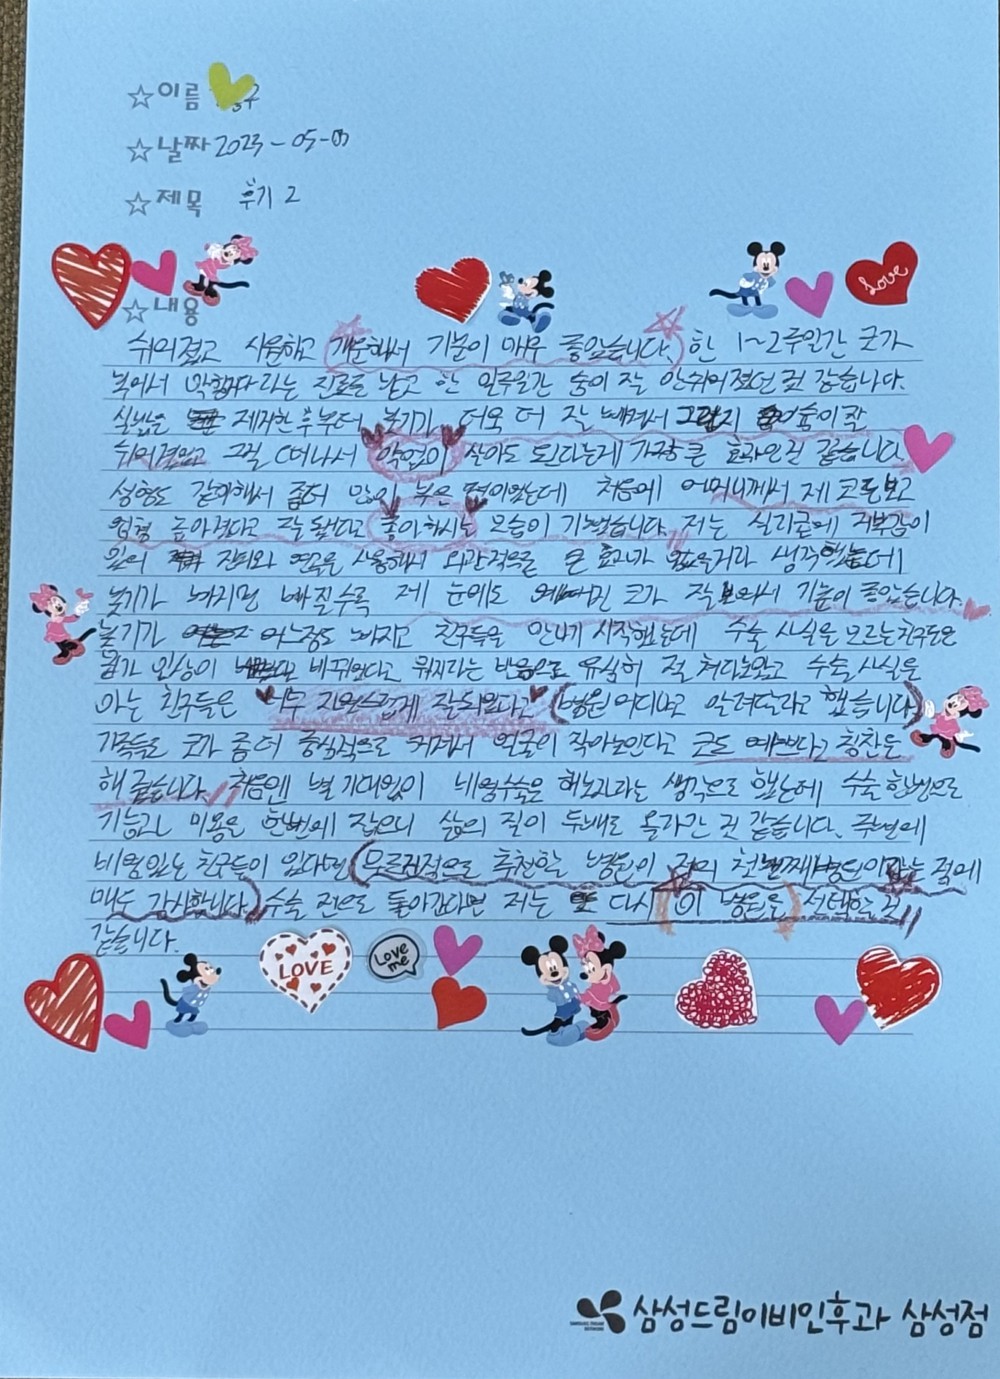 ☆이름
☆날짜 2023-05-03
☆제목 후기 2
Love
☆내용
쉬워졌고 시원하고 개운해서 기분이 매우 좋았습니다. 한 1~2주일간 코가
부어서 막힙니다라는 진료를 받고 한 일주일간 숨이 잘 안쉬어졌던 것 같습니다.
실밥을 제거한 후부터 붓기가 더욱 더 잘 빠져서 숨이 잘
쉬어졌었고 그걸 떠나서 약없이 살아도 된다는게 가장 큰 효과인것 같습니다.
성형도 같이해서 좀더 많이 부은 편이었는데 처음에 어머니께서 제 코를 보고
엄청 높아졌다고 잘 됐다고 좋아하시는 모습이 기뻤습니다. 저는 실리콘에 거부감이
있어 진피와 연골을 사용해서 외관적으로 큰 효과가 없을거라 생각했는데
붓기가 빠지면 빠질수록 제 눈에도 예뻐진 코가 잘 보여서 기분이 좋았습니다.
붓기가 어느정도 빠지고 친구들을 만나기 시작했는데 수술 사실을 모르는 친구들은
뭔가 인상이 바뀌었다고 뭐지라는 반응으로 유심히 절 쳐다보았고 수술 사실을
아는 친구들은 너무 자연스럽게 잘되었다고 (병원 어디냐고 알려달라고 했습니다)
가족들도 코가 좀 더 중심적으로 커져서 얼굴이 작아보인다고 코도 예쁘다고 칭찬을
해 줬습니다. 처음엔 별 기대없이 비염수술은 해보자라는 생각으로 했는데 수술 한번으로
기능과 미용을 한번에 잡으니 삶의 질이 두배로 올라간 것 같습니다. 주변에
비염있는 친구들이 있다면 (무조건적으로 추천할 병원이 저의 첫번째 병원이라는 점에
매우 감사합니다.) 수술 전으로 돌아간다면 저는 또 다시 이 병원을 선택할 것
같습니다.
LOVE
Love me
삼성드림이비인후과 삼성점